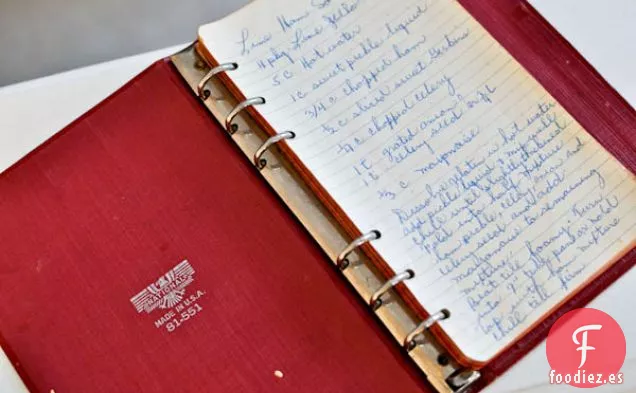 Lime Ham Sa
1 pkg Lime Jello
.5 C Hot water
1 C sweet pickle liquid
3/4 C chopped ham
1/2 C sliced sweet Gerkins
1/4 C chopped celery
1 t grated onion
1 t celery seed, salt
1/3 C mayonaise
Dissolve gelatin in hot water
add pickle liquid &
Chill until slightly thickened
Fold into half mixture
ham, pickle, celery, onion and
celery seed and add
mayonaise to remaining
mixture.
Beat till foamy. Turn
into 9" pan or mold
top with mixture
Chill till firm
NATIONAL
MADE IN U.S.A.
81-551
F
foodiez.es